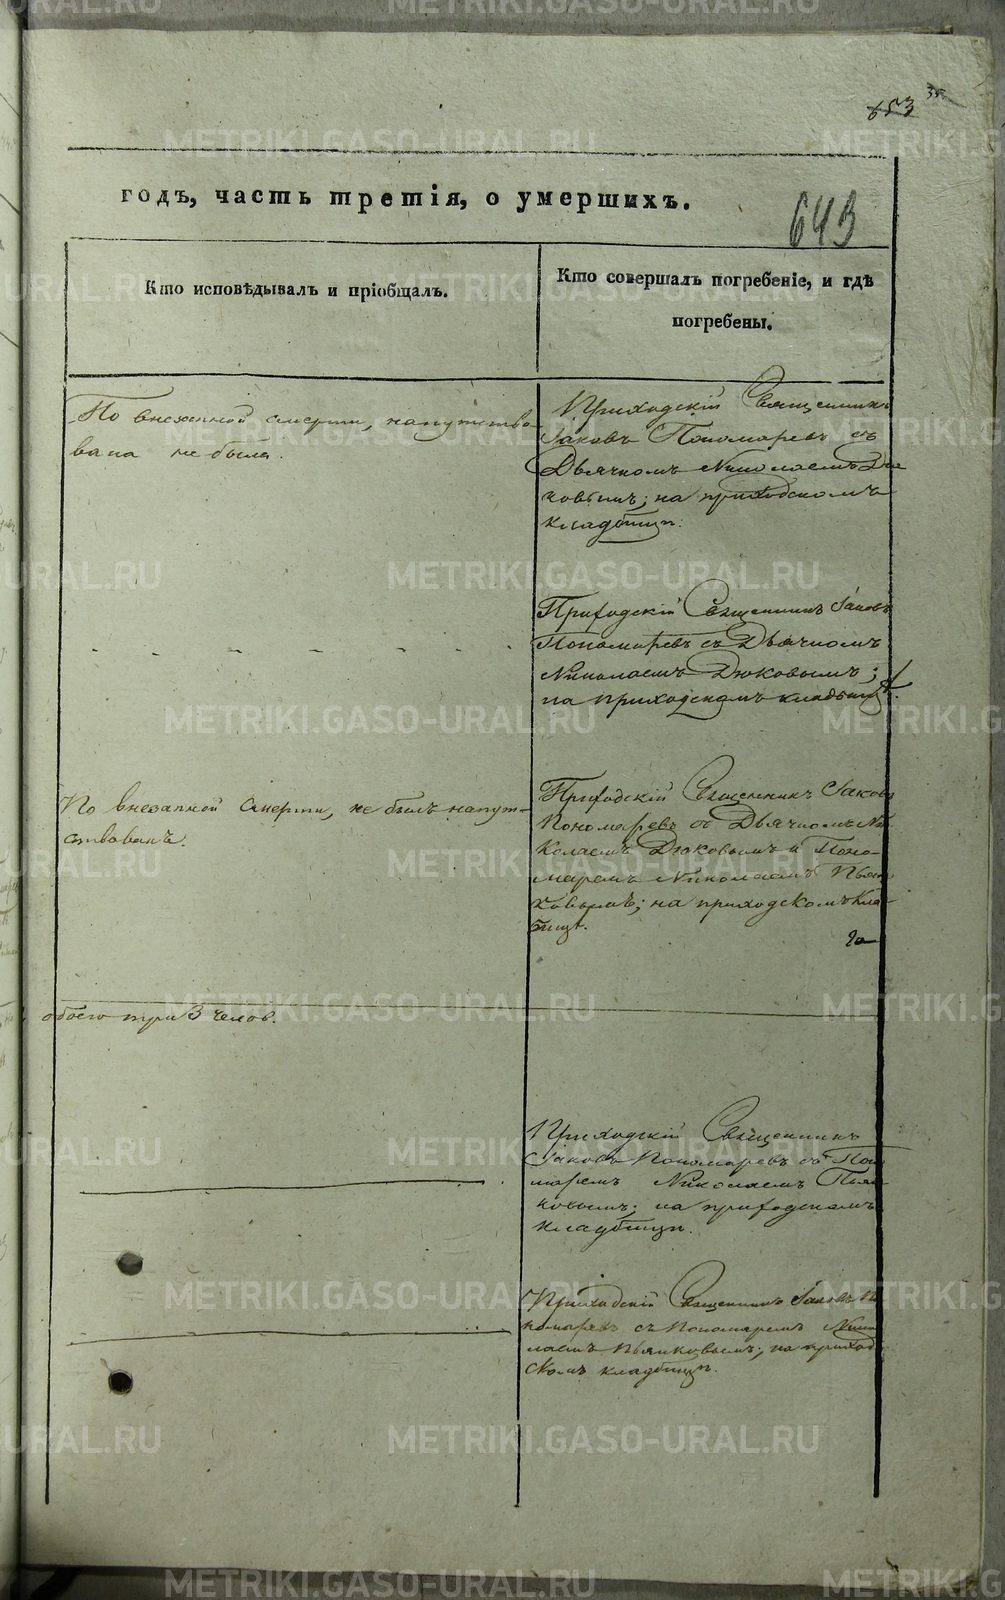 653
годъ, часть третія, о умершихъ.
643
Кто исповѣдывалъ и пріобщалъ.
Кто совершалъ погребеніе, и гдѣ
погребены.
По внезапной смерти, напутство-
вана не была.
Приходскій Священникъ
Іаковъ Пономаревъ съ
Дьячкомъ Николаемъ Дю
ковымъ; на приходскомъ
кладбищѣ.
Приходскій Священникъ Іаковъ
Пономаревъ съ Дьячкомъ
Николаемъ Дюковымъ;
на приходскомъ кладбищѣ.
По внезапной смерти, не былъ напут-
ствованъ.
Приходскій Священникъ Іаковъ
Пономаревъ съ Дьячкомъ Ни
колаемъ Дюковымъ и Поно-
маремъ Николаемъ Пьян
ковымъ; на приходскомъ кла-
бищѣ.
обоего три 3 челов.
Приходскій Священникъ
Іаковъ Пономаревъ съ Поно
маремъ Николаемъ Пьян
ковымъ; на приходскомъ
кладбищѣ.
Приходскій Священникъ Іаковъ По
номаревъ съ Пономаремъ Нико
лаемъ Пьянковымъ; на приход
скомъ кладбищѣ.
METRIKI.GASO-URAL.RU